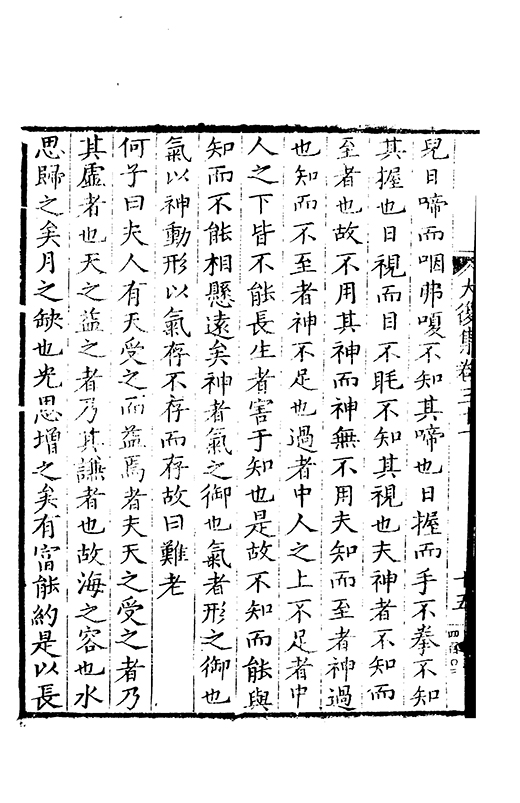 兒日啼而咽弗嗄不知其啼也日握而手不拳不知
其握也日視而目不眊不知其視也夫神者不知而
至者也故不用其神而神無不用夫知而至者神過
也知而不至者神不足也過者中人之上不足者中
人之下皆不能長生者害于知也是故不知而能與
知而不能相懸遠矣神者氣之御也氣者形之御也
氣以神動形以氣存不存而存故曰難老
何子曰夫人有天受之而益焉者夫天之受之者乃
其虛者也天之益之者乃其謙者也故海之容也水
思歸之矣月之缺也光思增之矣有富能約是以長
大復集卷三十一
十五